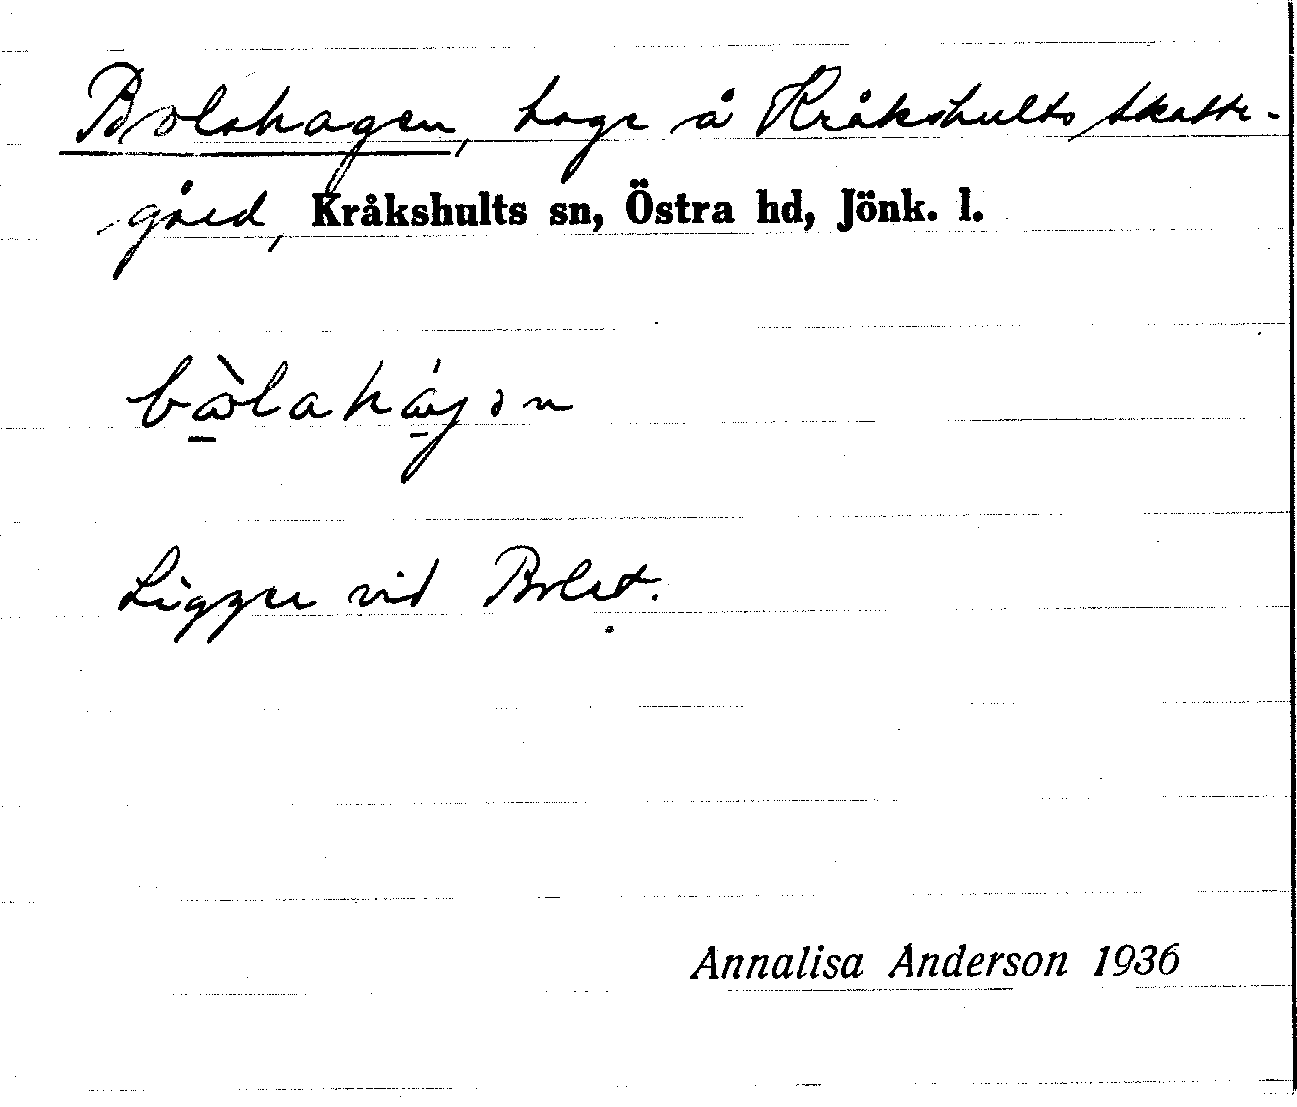 Bolahagen, hage å Kråkshults skatte-
gård, Kråkshults sn, Östra hd, Jönk. l.
Ligger vid Bolet.
Annalisa Anderson 1936